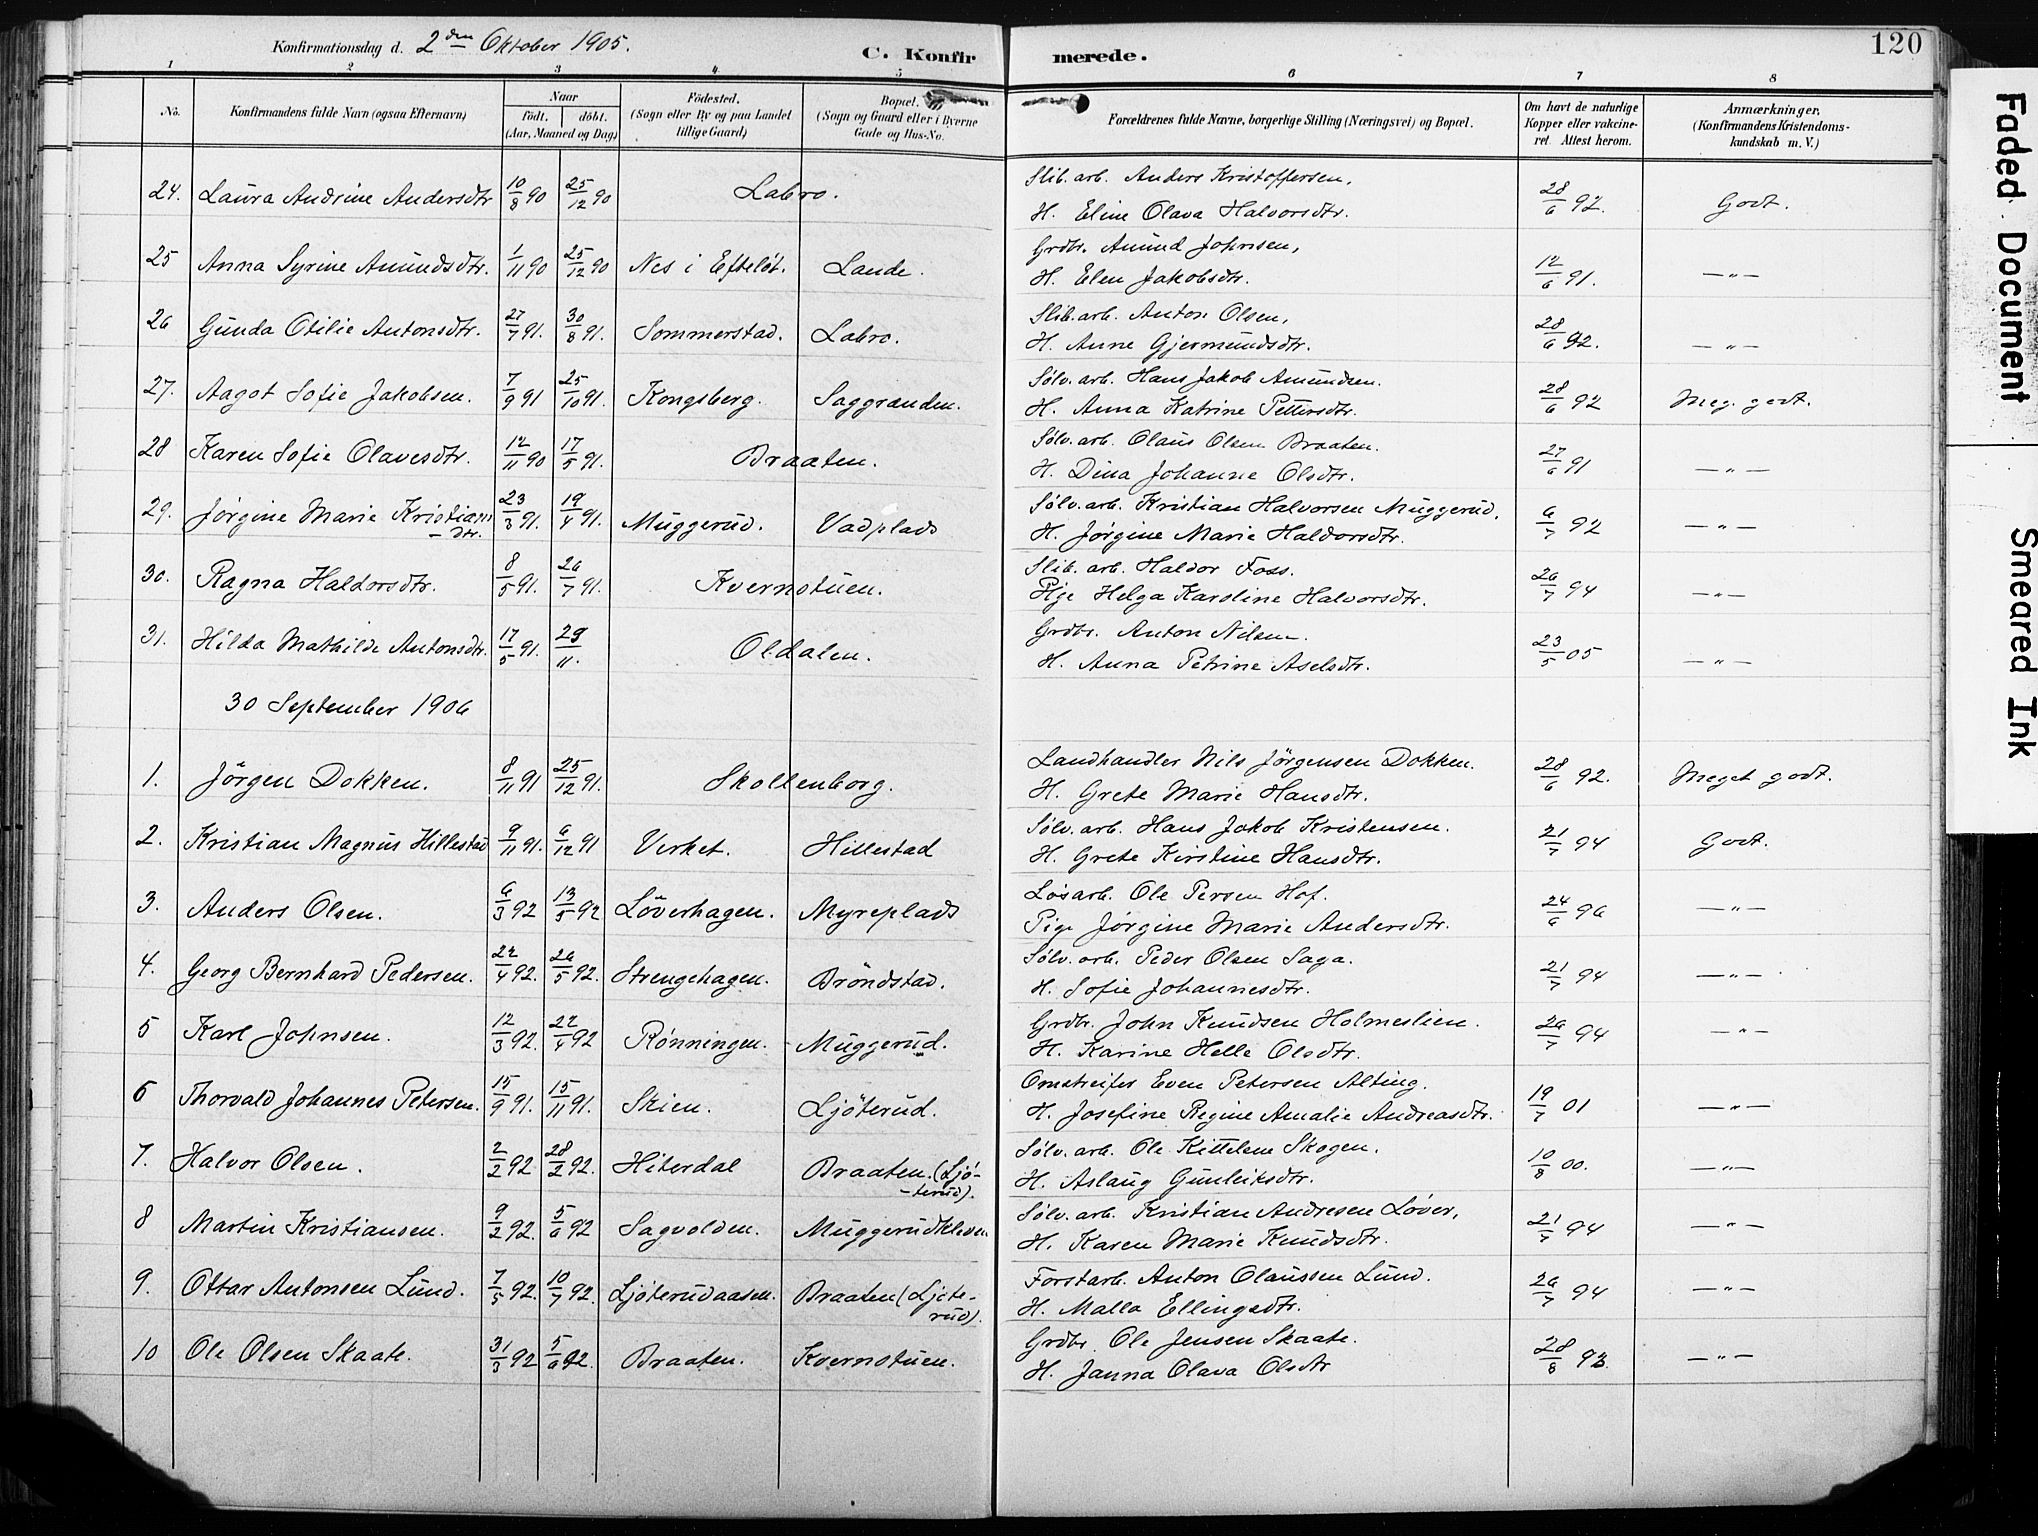 Konfirmationsdag d. 2den Oktober 1905. C. Konfirmerede. 120
1 2 3 4 5 6 7 8
No. Konfirmandens fulde Navn (ogsaa Efternavn) Naar født. døbt. (Aar, Maaned og Dag) Fødested. (Sogn eller By og paa Landet tillige Gaard) Bopæl. (Sogn og Gaard eller i Byerne Gade og Hus-No. Forældrenes fulde Navne, borgerlige Stilling (Næringsvei) og Bopæl. Om havt de naturlige Kopper eller vakcineret. Attest herom. Anmærkninger. (Konfirmandens Kristendomskundskab m. V.)
24. Laura Andrine Andersdtr 10/8 90 25/12 90 Labro. Slib. arb. Anders Kristoffersen, 28/6 92. Godt.
H. Eline Olava Halvorsdtr.
25 Anna Syrine Amundsdtr. 1/11 90 25/12 90 Nes i Efteløt. Lande. Grdbr. Amund Johnsen, 12/6 91. —"—
H. Elen Jakobsdtr.
26 Gunda Otilie Antonsdtr. 27/7 91. 30/8 91. Sommerstad. Labro. Slib. arb. Anton Olsen, 28/6 92. —"—
H. Anne Gjermundsdtr.
27. Aagot Sofie Jakobsen. 7/9 91 25/10 91. Kongsberg. Saggranden. Sølv. arb. Hans Jakob Amundsen. 28/6 92 Meg. godt.
H. Anna Katrine Pettersdtr.
28 Karen Sofie Olavesdtr. 12/11 90 17/5 91. Braaten. Sølv. arb. Olaus Olsen Braaten. 27/6 91 —"—
H. Dina Johanne Olsdtr.
29. Jørgine Marie Kristians 23/3 91. 19/4 91. Muggerud. Vadplads Sølv. arb. Kristian Halvorsen Muggerud. 6/7 92 —"—
-dtr. H. Jørgine Marie Haldorsdtr.
30. Ragna Haldorsdtr. 8/5 91. 26/7 91. Kvernstuen. Slib. arb. Haldor Foss. 26/7 94 —"—
Pige Helga Karoline Halvorsdtr.
31. Hilda Mathilde Antonsdtr. 17/5 91. 29/11. Oldalen. Grdbr. Anton Nilsen. 23/5 05 —"—
H. Anna Petrine Aselsdtr.
30 September 1906
1. Jörgen Dokken. 8/11 91 25/12 91. Skollenborg. Landhandler Nils Jörgensen Dokken. 28/6 92. Meget godt.
H. Grete Marie Hansdtr.
2. Kristian Magnus Hillestad 9/11 91. 6/12 91 Verket. Hillestad Sølv. arb. Hans Jakob Kristensen. 21/7 94 Godt.
H. Grete Kirstine Hansdtr.
3. Anders Olsen. 6/3 92 13/5 92 Löverhagen. Myreplads Løsarb. Ole Persen Hof. 24/6 96 —"—
Pige Jørgine Marie Andersdtr.
4. Georg Bernhard Pedersen. 22/4 92. 26/5 92. Strengehagen. Bröndstad. Sølv. arb. Peder Olsen Saga. 21/7 94 —"—
H. Sofie Johannesdtr.
5 Karl Johnsen. 12/3 92. 22/4 92 Rønningen. Muggerud. Grdbr. John Knudsen Holmeslien. 26/7 94 —"—
H. Karine Helle Olsdtr.
6 Thorvald Johannes Petersen. 15/9 91. 15/11 91. Skien. Ljöterud. Omstreifer Even Petersen Alting. 19/7 01 —"—
H. Josefine Regine Amalie Andreasdtr.
7. Halvor Olsen. 2/2 92 28/2 92. Hiterdal Braaten. (Ljö- Sølv. arb. Ole Kittelsen Skogen. 10/8 00. —"—
-terud). H. Aslaug Gunleiksdtr.
8 Martin Kristiansen. 9/2 92. 5/6 92 Sagvolden. Muggerudkleven Sølv. arb. Kristian Andresen Løver, 21/7 94 —"—
H. Karen Marie Knudsdtr.
9. Ottar Antonsen Lund. 7/5 92. 10/7 92. Ljöterudaasen. Braaten (Ljøte- Forstarb. Anton Olaussen Lund. 26/7 94 —"—
rud). H. Malla Ellingsdtr.
10 Ole Olsen Skaate. 31/3 92 5/6 92. Braaten. Kvernstuen. Grdbr. Ole Jensen Skaate. 28/8 93. —"—
H. Janna Olava Olsdtr
Faded Document
Smeared Ink